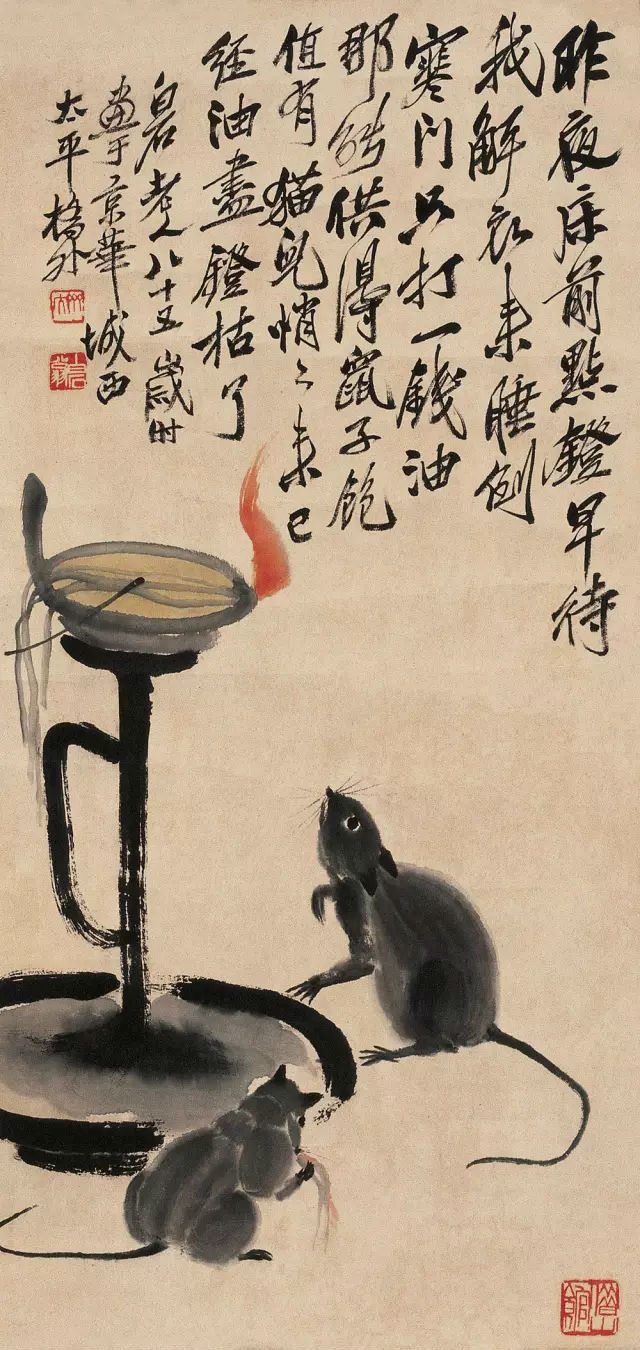 昨夜床前點鐙早待
我解衣来睡倒
寒门只打一錢油
那能供得鼠子飽
值有猫兒悄〻来已
經油盡鐙枯了
白石老人八十五歲时
畫于京華城西
太平橋外
借山館